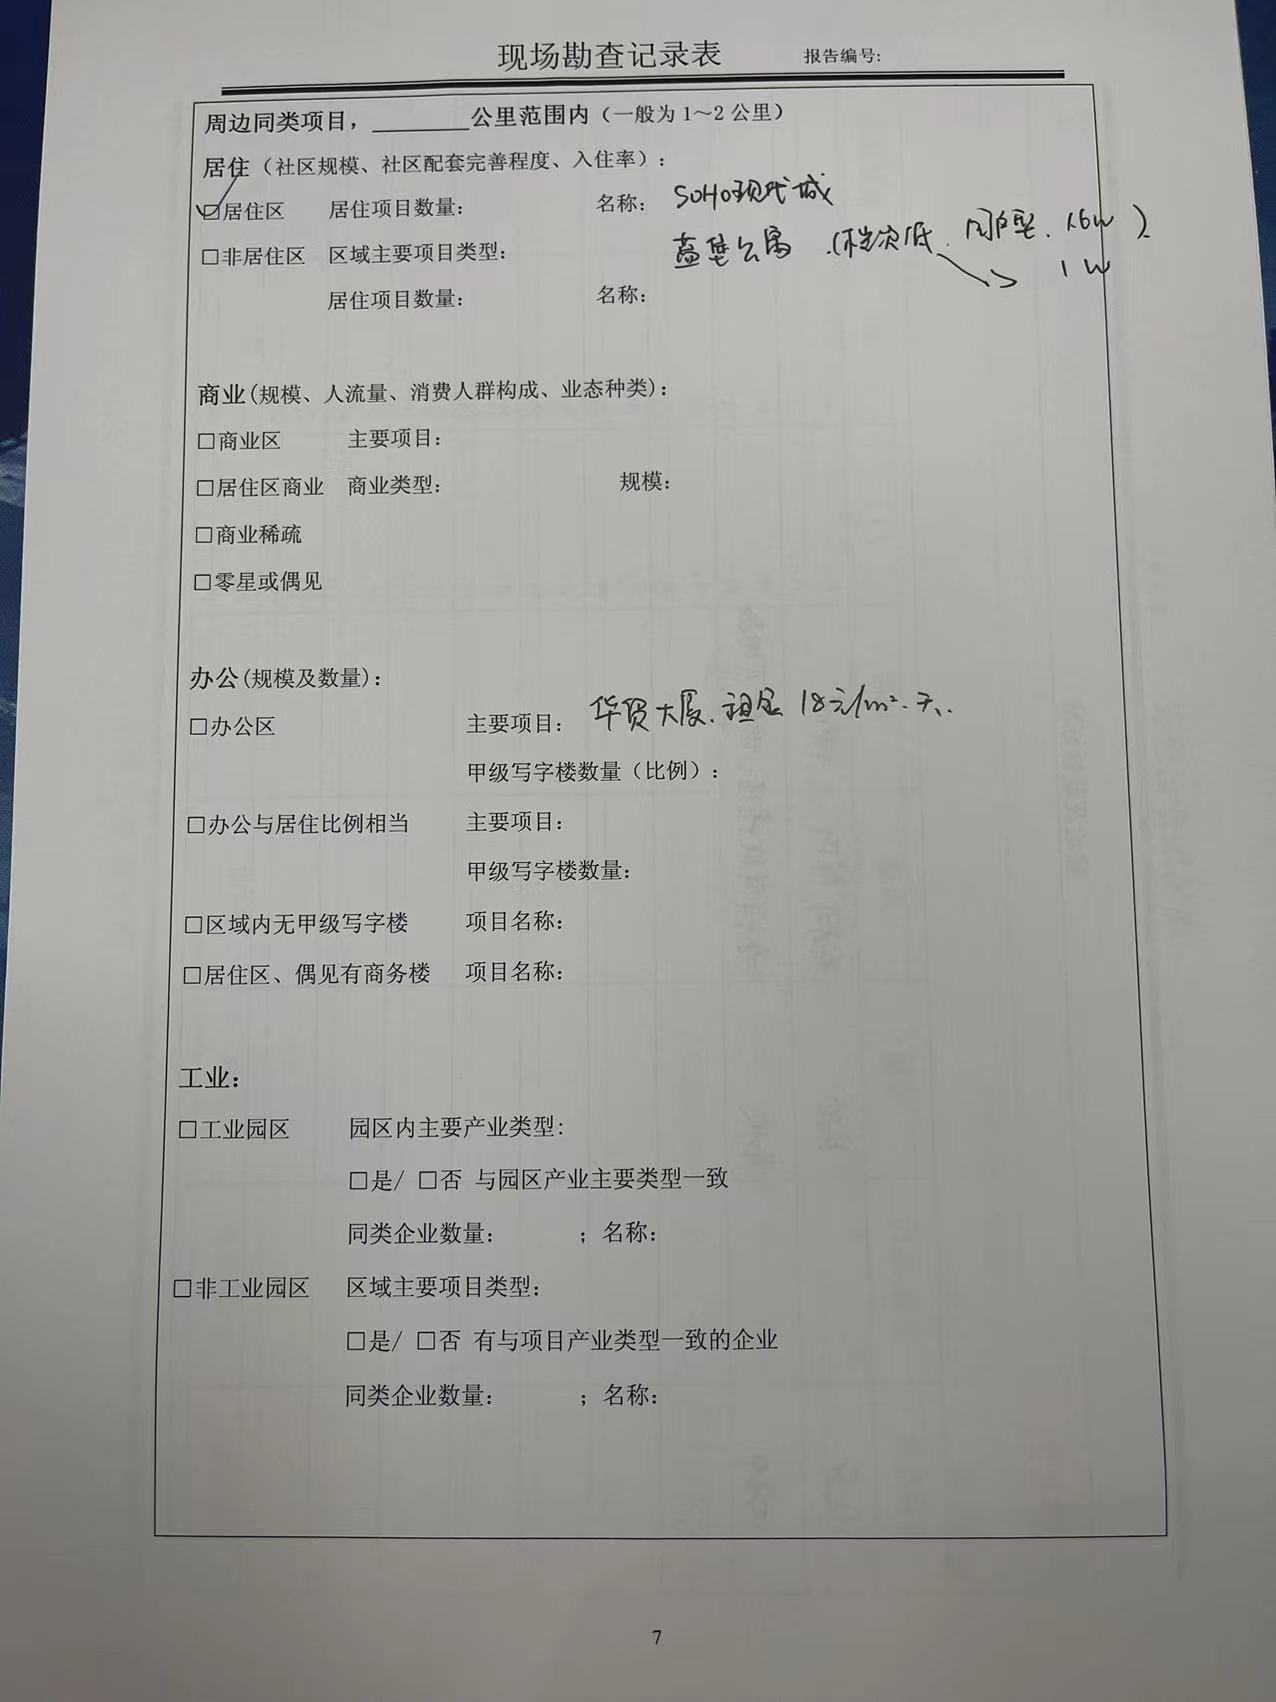 现场勘查记录表 报告编号:
周边同类项目，________公里范围内（一般为1～2公里）
居住（社区规模、社区配套完善程度、入住率）:
☑居住区 居住项目数量: 名称: SOHO现代城
□非居住区 区域主要项目类型: 公寓（档次低、同户型、1.6W）
1W
居住项目数量: 名称:
商业(规模、人流量、消费人群构成、业态种类):
□商业区 主要项目:
□居住区商业 商业类型: 规模:
□商业稀疏
□零星或偶见
办公(规模及数量):
□办公区 主要项目: 华贸大厦、租金18元/m²·天、
甲级写字楼数量（比例）:
□办公与居住比例相当 主要项目:
甲级写字楼数量:
□区域内无甲级写字楼 项目名称:
□居住区、偶见有商务楼 项目名称:
工业:
□工业园区 园区内主要产业类型:
□是/ □否 与园区产业主要类型一致
同类企业数量: ；名称:
□非工业园区 区域主要项目类型:
□是/ □否 有与项目产业类型一致的企业
同类企业数量: ；名称:
7